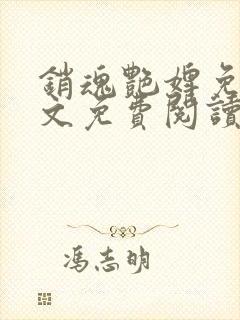 銷魂艷婢免
文免費閱讀
馮志明